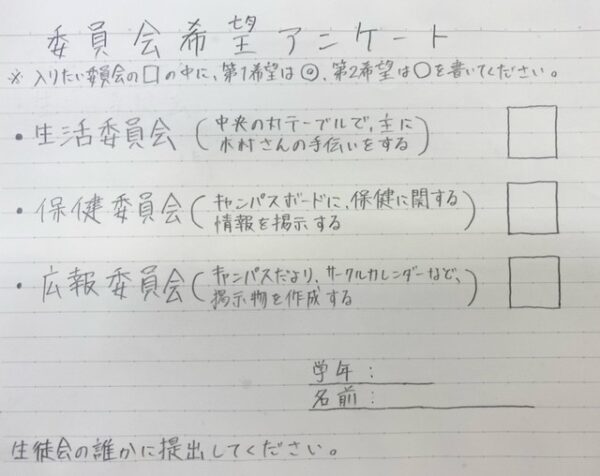 委員会希望アンケート
※ 入りたい委員会の□の中に、第1希望は◎、第2希望は○を書いてください。
・生活委員会（中央の丸テーブルで、主に
木村さんの手伝いをする）
・保健委員会（キャンパスボードに、保健に関する
情報を掲示する）
・広報委員会（キャンパスだより、サークルカレンダーなど、
掲示物を作成する）
学年：
名前：
生徒会の誰かに提出してください。